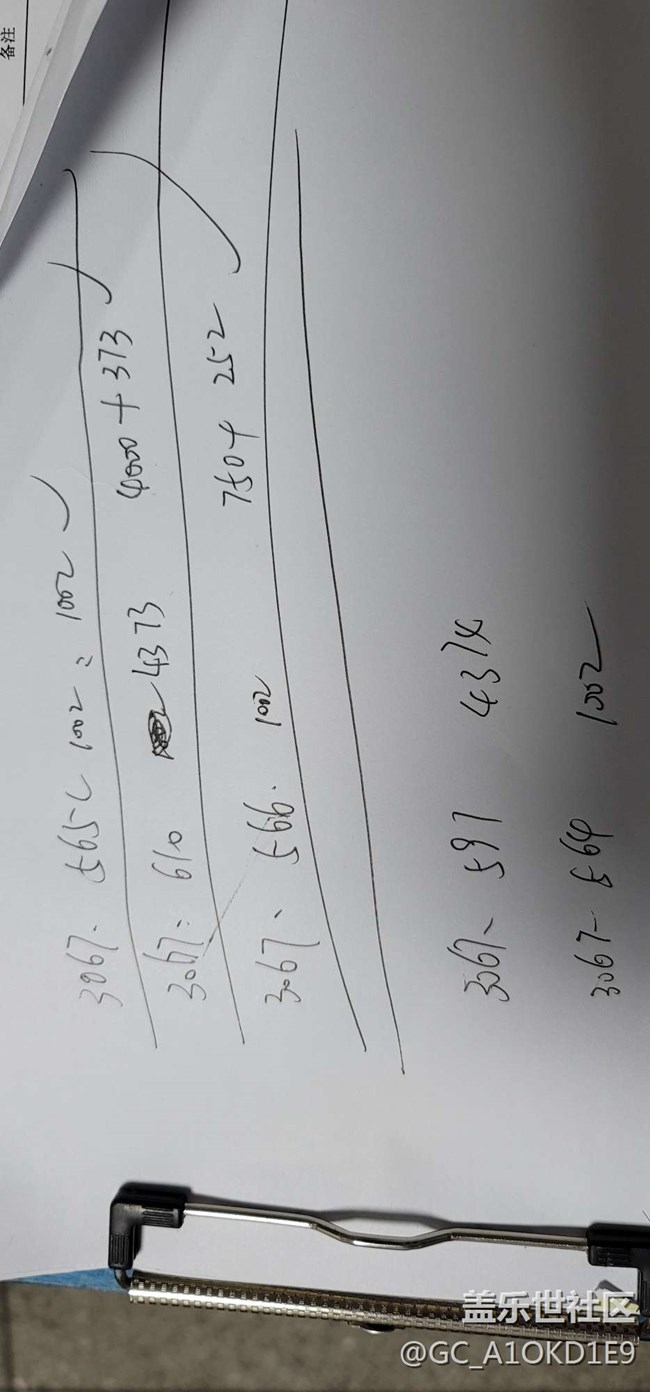 备注
3067. 565 < 1002 = 1002
3067. 610 4373 4000+373
3067. 566. 1002 750+252
3067. 597 4374
3067-564 1002
盖乐世社区
@GC_A1OKD1E9